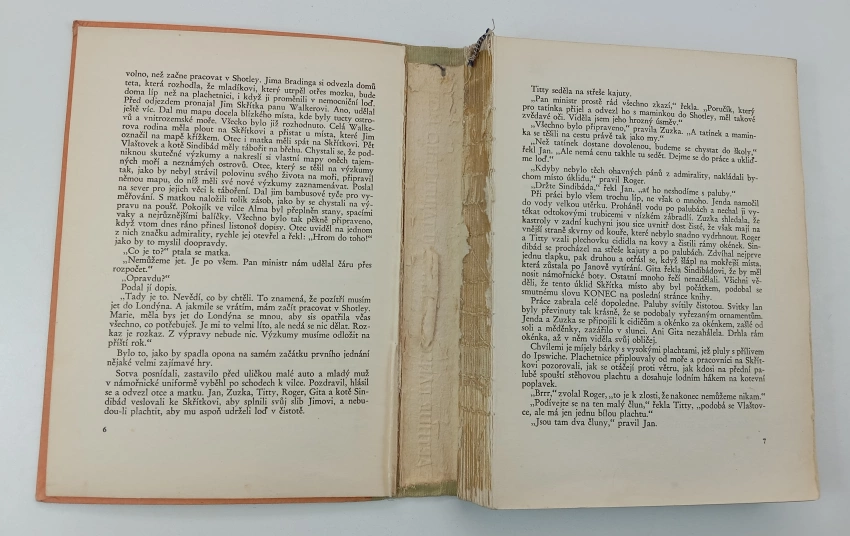 volno, než začne pracovat v Shotley. Jima Bradinga si odvezla domů
teta, která rozhodla, že mladíkovi, který utrpěl otřes mozku, bude
doma líp než na plachetnici, i když ji proměnili v nemocniční loď.
Před odjezdem pronajal Jim Skřítka panu Walkerovi. Ano, udělal
ještě víc. Dal mu mapu docela blízkého místa, kde byly tucty ostro-
vů a vnitrozemské moře. Všecko bylo již rozhodnuto. Celá Walke-
rova rodina měla plout na Skřítkovi a přistat u místa, které Jim
označil na mapě křížkem. Otec i matka měli spát na Skřítkovi. Pět
Vlaštovek a kotě Sindibád měly tábořit na břehu. Chystali se, že pod-
niknou skutečné výzkumy a nakreslí si vlastní mapy oněch tajem-
ných moří a neznámých ostrovů. Otec, který se těšil na výzkumy
tak, jako by nebyl strávil polovinu svého života na moři, připravil
němou mapu, do níž měli své nové výzkumy zaznamenávat. Poslal
na sever pro jejich věci k táboření. Dal jim bambusové tyče pro vy-
měřování. S matkou naložili tolik zásob, jako by se chystali na vý-
pravu na poušť. Pokojík ve vilce Alma byl přeplněn stany, spacími
vaky a nejrůznějšími balíčky. Všechno bylo tak pěkně připraveno,
když vtom dnes ráno přinesl listonoš dopisy. Otec uviděl na jednom
z nich značku admirality, rychle jej otevřel a řekl: „Hrom do toho!“
jako by to myslil doopravdy.
„Co je to?“ ptala se matka.
„Nemůžeme jet. Je po všem. Pan ministr nám udělal čáru přes
rozpočet.“
„Opravdu?“
Podal jí dopis.
„Tady je to. Nevědí, co by chtěli. To znamená, že pozítří musím
jet do Londýna. A jakmile se vrátím, mám začít pracovat v Shotley.
Marie, měla bys jet do Londýna se mnou, aby sis opatřila včas
všechno, co potřebuješ. Je mi to velmi líto, ale nedá se nic dělat. Roz-
kaz je rozkaz. Z výpravy nebude nic. Výzkumy musíme odložit na
příští rok.“
Bylo to, jako by spadla opona na samém začátku prvního jednání
nějaké velmi zajímavé hry.
Sotva posnídali, zastavilo před uličkou malé auto a mladý muž
v námořnické uniformě vyběhl po schodech k vilce. Pozdravil, hlásil
se a odvezl otce a matku. Jan, Zuzka, Titty, Roger, Gita a kotě Sin-
dibád veslovali ke Skřítkovi, aby splnili svůj slib Jimovi, a nebu-
dou-li plachtit, aby mu aspoň udrželi loď v čistotě.
6
Titty seděla na střeše kajuty.
„Pan ministr prostě rád všechno zkazí,“ řekla. „Poručík, který
pro tatínka přijel a odvezl ho s maminkou do Shotley, měl takové
zvědavé oči. Viděla jsem jeho hrozný úsměv.“
„Všechno bylo připraveno,“ pravila Zuzka. „A tatínek a mamin-
ka se těšili na cestu právě tak jako my.“
„Než tatínek dostane dovolenou, budeme se chystat do školy,“
řekl Jan. „Ale nemá cenu takhle tu sedět. Dejme se do práce a ukliď-
me loď.“
„Kdyby nebylo těch ohavných pánů z admirality, nakládali by-
chom místo úklidu,“ pravil Roger.
„Držte Sindibáda,“ řekl Jan, „ať ho neshodíme s paluby.“
Při práci bylo všem trochu líp, ne však o mnoho. Jenda namočil
do vody velkou utěrku. Proháněl vodu po palubách a nechal ji vy-
tékat odtokovými trubicemi v nízkém zábradlí. Zuzka shledala, že
kastroly v zadní kuchyni jsou sice uvnitř dost čisté, že však mají na
vnější straně skvrny od kouře, které nebylo snadno vydrhnout. Roger
a Titty vzali plechovku cididla na kovy a čistili rámy okének. Sin-
dibád se procházel na střeše kajuty a po palubách. Zdvíhal nejprve
jednu tlapku, pak druhou a otřásl se, když šlápl na mokřejší místa,
která zůstala po Janově vytírání. Gita řekla Sindibádovi, že by měl
nosit námořnické boty. Ostatní mnoho řečí nenadělali. Všichni vě-
děli, že tento úklid Skřítka místo aby byl počátkem, podobal se
smutnému slovu KONEC na poslední stránce knihy.
Práce zabrala celé dopoledne. Paluby svítily čistotou. Svitky lan
byly převinuty tak krásně, že se podobaly vyřezaným ornamentům.
Jenda a Zuzka se připojili k cidičům a okénko za okénkem, zašlé od
soli a měděnky, zazářilo v slunci. Ani Gita nezahálela. Drhla rám
okénka, až v něm viděla svůj obličej.
Chvílemi je míjely bárky s vysokými plachtami, jež pluly s přílivem
do Ipswiche. Plachetnice připlouvaly od moře a pracovníci na Skřít-
kovi pozorovali, jak se otáčejí proti větru, jak kdosi na přední pa-
lubě spouští stěhovou plachtu a dosahuje lodním hákem na kotevní
poplavek.
„Brrr,“ zvolal Roger, „to je k zlosti, že nakonec nemůžeme nikam.“
„Podívejte se na ten malý člun,“ řekla Titty, „podobá se Vlaštov-
ce, ale má jen jednu bílou plachtu.“
„Jsou tam dva čluny,“ pravil Jan.
7